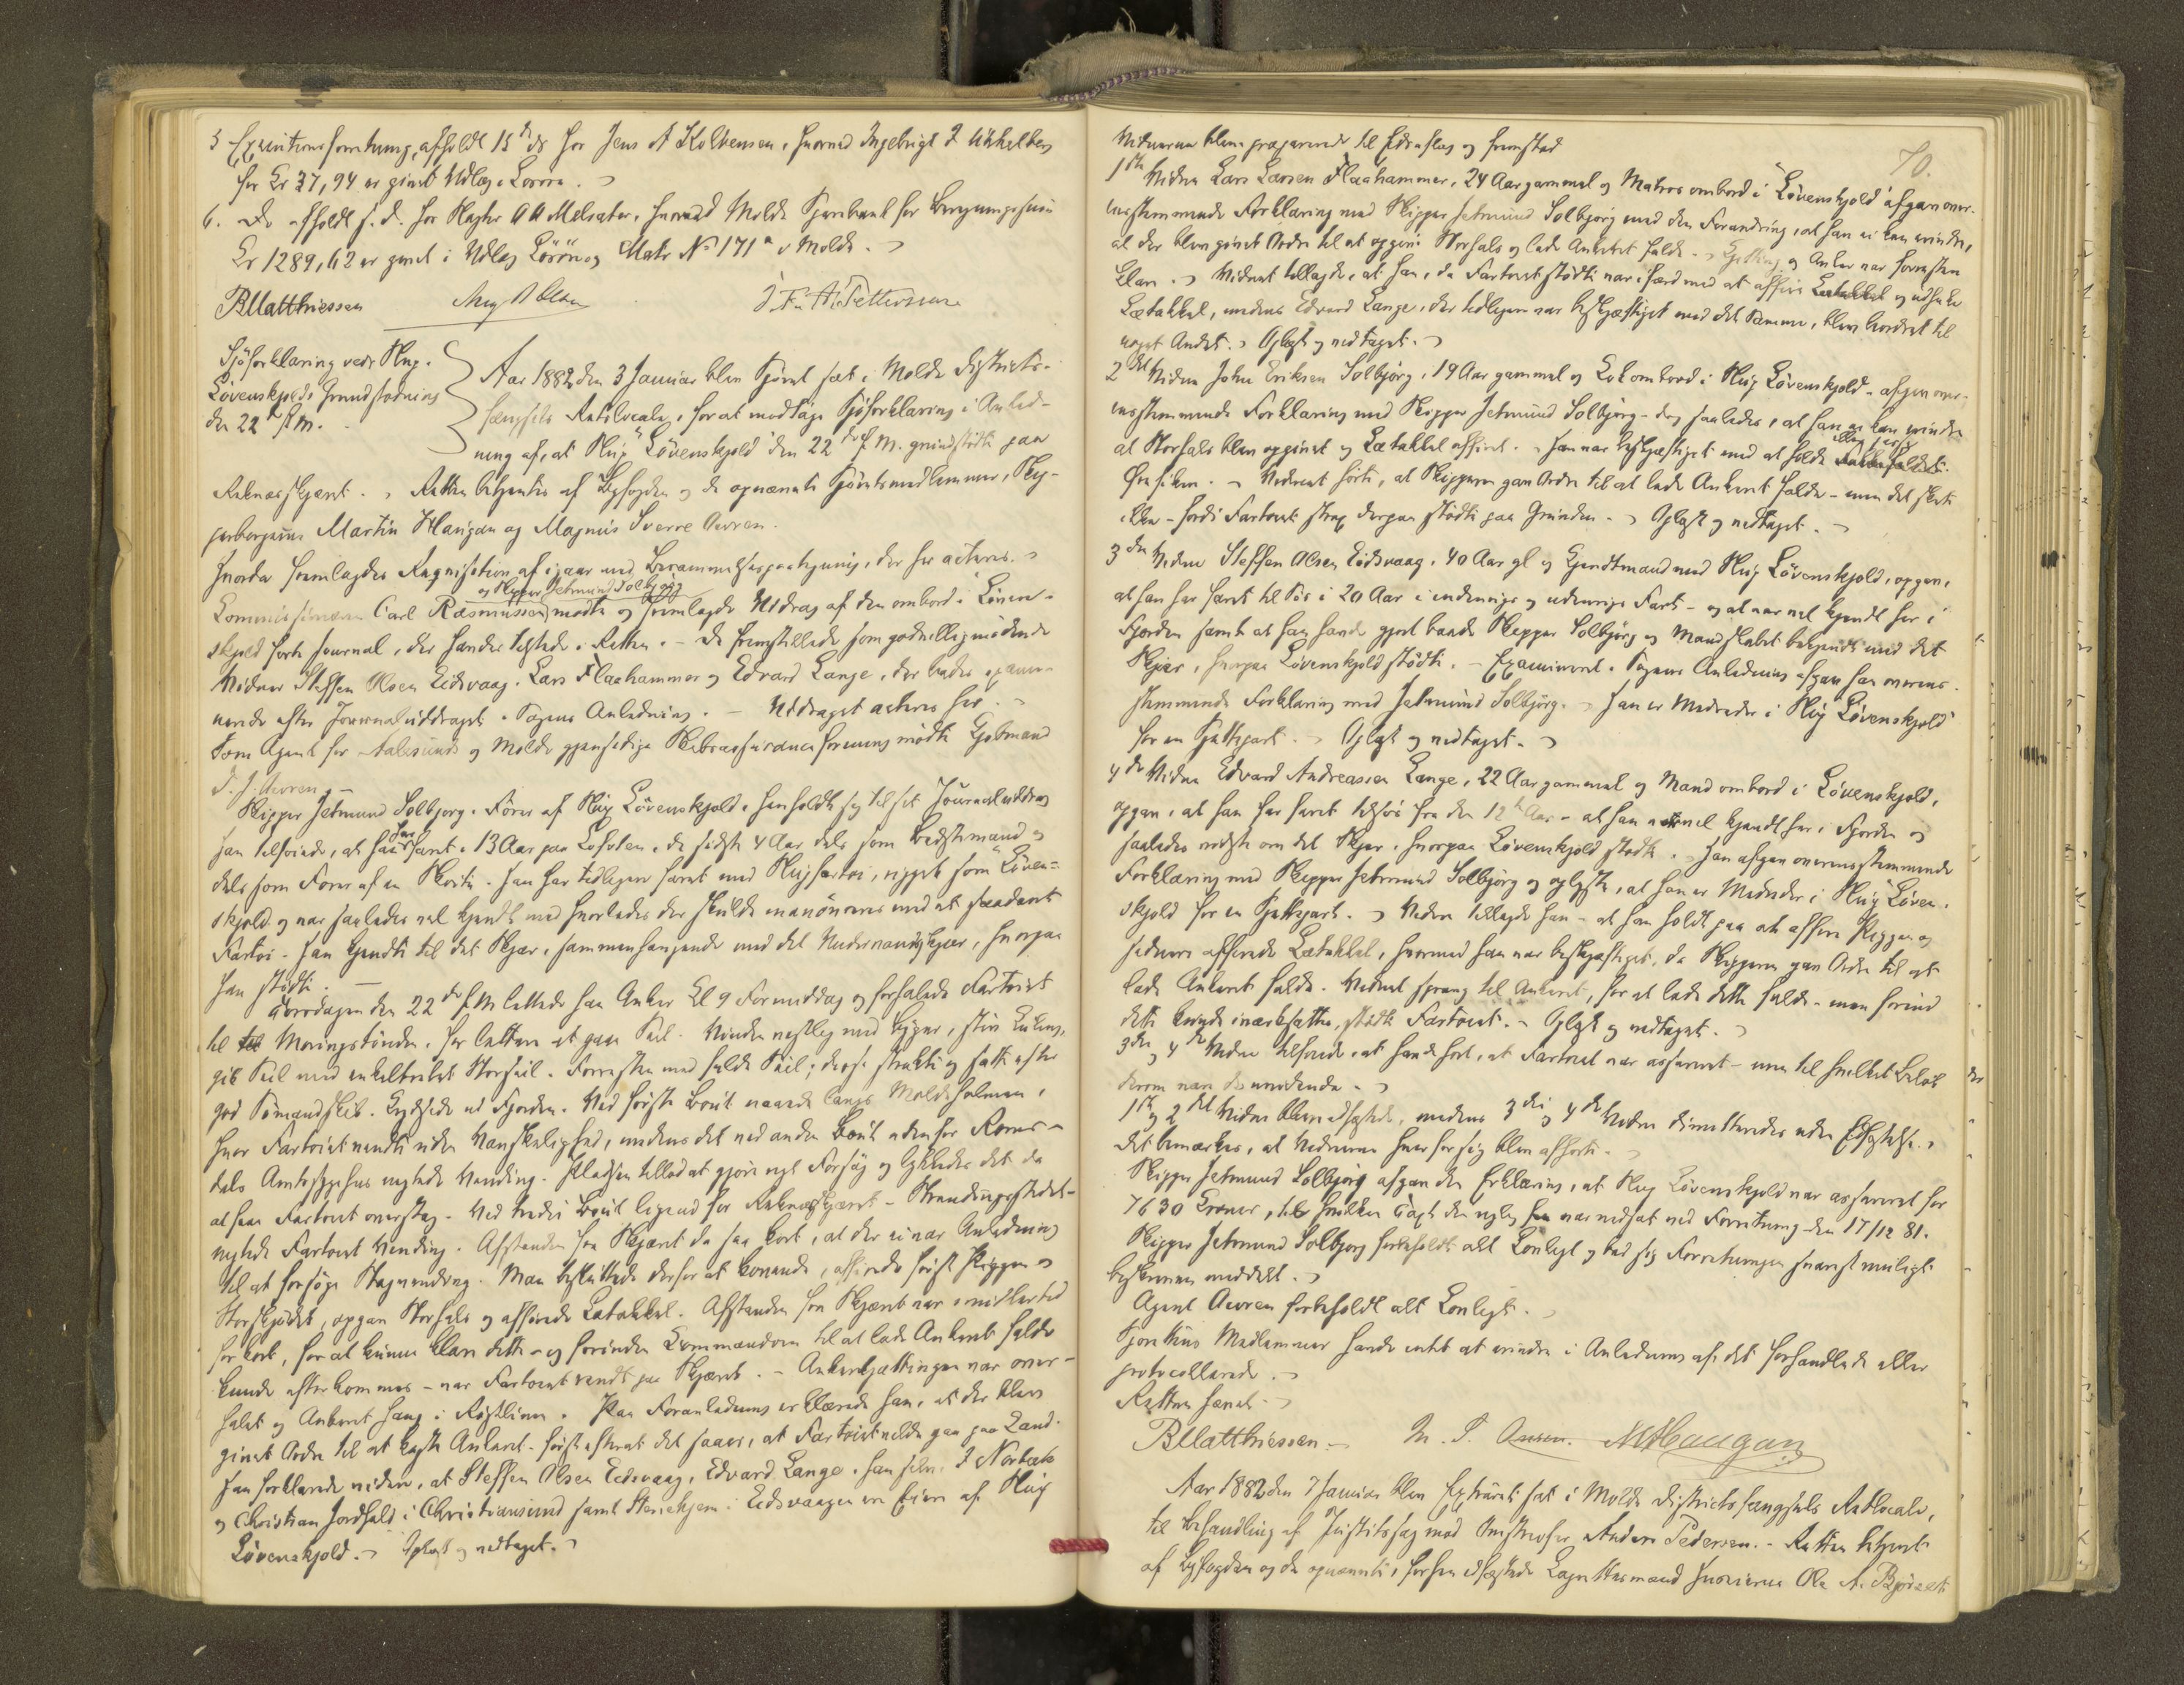 5 Executionsforretning, afholdt 15de ds hos Jens A Kolbensen, hvorved Ingebrigt
for Kr 37,94 er givet Udlæg i Løsøre.
6. Do afholdt s. d. hos A A Melsæter, hvorved Molde Sparebank for
Kr 1289,62 er givet i Udlæg Løsøre og Matr No 171a i Molde.
BMatthiessen Aug J. F. A. Pettersen
Sjöforklaring vedr Skip.
Lövenskjolds Grundstødning
den 22de f. M.
Aar 1882 den 3 Januar blev Sjøret sat i Molde Districts-
fængsels Retslocale, for at modtage Sjøforklaring i Anled-
ning af, at Skip "Lövenskjold" den 22de f. M. grundstødte paa
Reknæsskjæret. Retten betjentes af Byfogden og de opnævnte Sjøretsmedlemmer, Skip-
perborgerne Martin Haugan og Magnus Sverre Owren.
Hvorda fremlagdes Reqvisition af igaar med Berammelsespaategning, der her acteres.
og Skipper Jetmund Solbjørg
Commissionær Carl Rasmussen mødte og fremlagde Uddrag af den ombord i "Löven-
skjold" førte Journal, der havdes tilstede i Retten. - De fremstillede som godvilligmødende
Vidner Steffen Olsen Eidsvaag, Lars Flaahammer og Edvard Lange, der bades exami-
nerede efter Journaluddraget i Sagens Anledning. - Uddraget acteres her.
Som Agent for Aalesunds og Molde gjensidige Skibsassuranceforening mødte Kjøbmand
J. J. Owren. -
Skipper Jetmund Solbjørg, Fører af Skip Lövenskjold, henholdt sig til sit Journaluddrag
han tilføiede, at han har faret i 13 Aar paa Lofoten, de sidste 4 Aar dels som Bedstemand og
dels som Fører af en Skøite. Han har tidligere faret med Skipfartøi, rigget som "Löven-
skjold" og var saaledes vel kjendt med hvorledes der skulde manøvreres med et saadant
Fartøi. Han kjendte til det Skjær, sammenhængende med det Skjær, hvorpaa
han stødte. -
Torsdagen den 22de f. M. lettede han Anker Kl 9 Formiddag og forhalede Fartøiet
til Moringstønden, for lettere at gaa Seil. Vinden vestlig med Byger, stiv Kuling,
gik Seil med enkeltrebet Storseil. Forresten med fulde Seil; disse strakte og satte efter
god Sømandsskik. Krydsede ud Fjorden. Ved første Bout naaede langs Moldeholmen,
hvor Fartøiet vendte uden Vanskelighed, imedens det ved anden Bout udenfor Roms-
dals Amtssygehus nægtede Vending. Pladsen tillod at gjøre nyt Forsøg og lykkedes det da
at faa Fartøiet overstag. Ved tredie Bout ligeud for Reknæsskjæret - Strandingsstedet -
nægtede Fartøiet Vending. Afstanden fra Skjæret da saa kort, at der ei var Anledning
til at forsøge Stagvending. Man besluttede derfor at kovende, affirede først Piggen og
Storskjødet, opgav Storhals og affirede Letakkel. Afstanden fra Skjæret var imidlertid
for kort, for at kunne klare dette - og forinden Commandoen til at lade Ankeret falde
kunde efterkommes - var Fartøiet rendt paa Skjæret. - Ankerkjættingen var over-
halet og Ankeret hang i Røstlinen. Paa Foranledning erklærede han, at der blev
givet Ordre til at kaste Ankeret - først efterat det saaes, at Fartøiet vilde gaa paa Land.
Han forklarede videre, at Steffen Olsen Eidsvaag, Edvard Lange, han selv, I Norbek
og Christian Jordhald i Christiansund samt Steriekjem i Eidsvaagen ere Eiere af Skip
Lövenskjold. - Oplæst og vedtaget. -
70.
Vidnerne bleve præparerede til Edsaflæg og fremstod
1ste Vidne Lars Larsen Flaahammer, 24 Aar gammel og Matros ombord i "Lövenskjold" afgav over-
ensstemmende Forklaring med Skipper Jetmund Solbjørg med den Forandring, at han ei kan erindre,
at der blev givet Ordre til at opgive Storhals og lade Ankeret falde. - Kjetting og Anker var forresten
klar. - Vidnet tillagde, at han, da Fartøiet stødte var ifærd med at affire og udhale
Letakkel, imedens Edvard Lange, der tidligere var beskjæftiget med det Samme, blev beordret til
noget Andet. - Oplæst og vedtaget. -
2det Vidne John Eriksen Solbjørg, 19 Aar gammel og Kok ombord i Skip Lövenskjold - afgav over-
ensstemmende Forklaring med Skipper Jetmund Solbjørg - dog saaledes, at han ei kan erindre
at Storhals blev opgivet og Letakkel affiret. - Han var beskjæftiget med at holde
Øie - Vidnet hørte, at Skipperen gav Ordre til at lade Ankeret falde - men det skete
ikke - fordi Fartøiet strax derpaa stødte paa Grunden. - Oplæst og vedtaget. -
3die Vidne Steffen Olsen Eidsvaag, 40 Aar gl og Kjendtmand med Skip Lövenskjold, opgav,
at han har faret til Søs i 20 Aar i indenrigs og udenrigs Fart - og at var vel kjendt her i
Fjorden samt at han havde gjort baade Skipper Solbjørg og Mandskabet bekjendt med det
Skjær, hvorpaa Lövenskjold stødte. - Examineret i Sagens Anledning afgav han overens-
stemmende Forklaring med Jetmund Solbjørg. - Han er Medreder i Skip "Lövenskjold"
for en Sjettepart. - Oplæst og vedtaget. -
4de Vidne Edvard Andreassen Lange, 22 Aar gammel og Mand ombord i Lövenskjold,
opgav, at han har faret tilsøs fra den 12te Aar - at han var vel kjendt her i Fjorden og
saaledes vidste om det Skjær, hvorpaa Lövenskjold stødte. - Han afgav overensstemmende
Forklaring med Skipper Jetmund Solbjørg og oplyste, at han er Medreder i Skip "Löven-
skjold" for en Sjettepart. - Videre tillagde han - at han holdt paa at affire Piggen og
sednere affirede Letakkel, hvormed han var beskjæftiget, da Skipperen gav Ordre til at
lade Ankeret falde. Vidnet sprang til Ankeret, for at lade dette falde - men forind
dette kunde iværksættes, stødte Fartøiet. - Oplæst og vedtaget. -
3die og 4de Vidne tilføiede, at havde hørt, at Fartøiet var assureret - men til hvilket Beløb
derom vare de uvidende. -
1ste og 2det Vidne bleve edfæstede, medens 3die og 4de Vidne dimitteredes uden Edfæstelse. -
Det bemærkes, at Vidnerne hver for sig blev afhørte. -
Skipper Jetmund Solbjørg afgav den Erklæring, at Skip Lövenskjold var assureret for
7630 Kroner, til hvilken Taxt den var nedsat ved Forretning den 17/12 81.
Skipper Jetmund Solbjørg forbeholdt alt Lovligt og bad sig Forretningen snarest muligt
beskreven meddelt. -
Agent Owren forbeholdt alt Lovligt. -
Sjørettens Medlemmer havde intet at erindre i Anledning af det forhandlede eller
protocollerede. -
Retten hævet. -
BMatthiessen. - M. S. Owren. MHaugan
Aar 1882 den 7 Januar blev Extraret sat i Molde Districtsfængsels Retslocale,
til Behandling af Justitssag mod Anders Pedersen. - Retten betjent
af Byfogden og de opnævnte, forhen edfæstede Lagrettesmænd Ole A. Bjørset